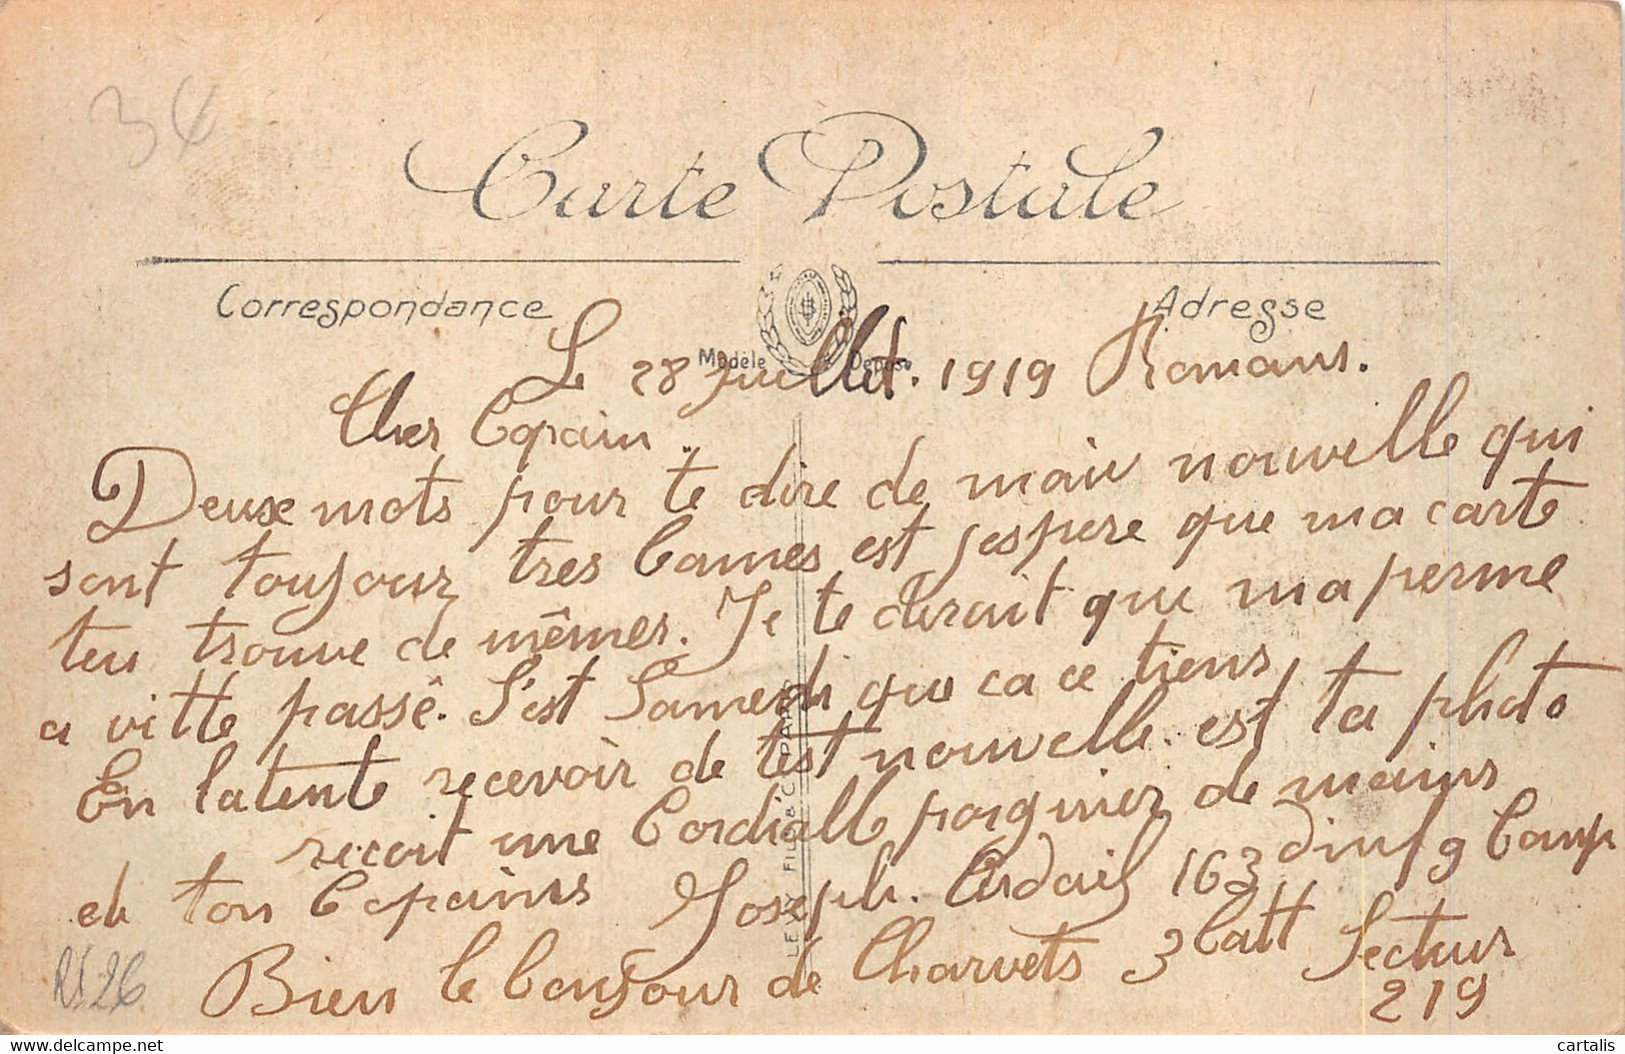 3€
Carte Postale
Correspondance
Adresse
Modèle Déposé
Le 28 Juillet. 1919 Romans.
Cher Copain..
Deux mots pour te dire de maiv nouvelle qui
sont toujour tres bonnes est jespere que ma carte
teu trouve de mêmes. Je te dirait que ma perme
a vitte passê. S'est Samedi que ca ce tiens
En latente recevoir de test nouvelle. est ta photo
recoit une Cordialle poignier de mains
de ton Copains Joseph. 163 dinf 9 Comp
Bien le bonjour de Charvets 3 batt Secteur
219
LEVY FILS & Cie PARIS
26
delcampe.net
cartalis